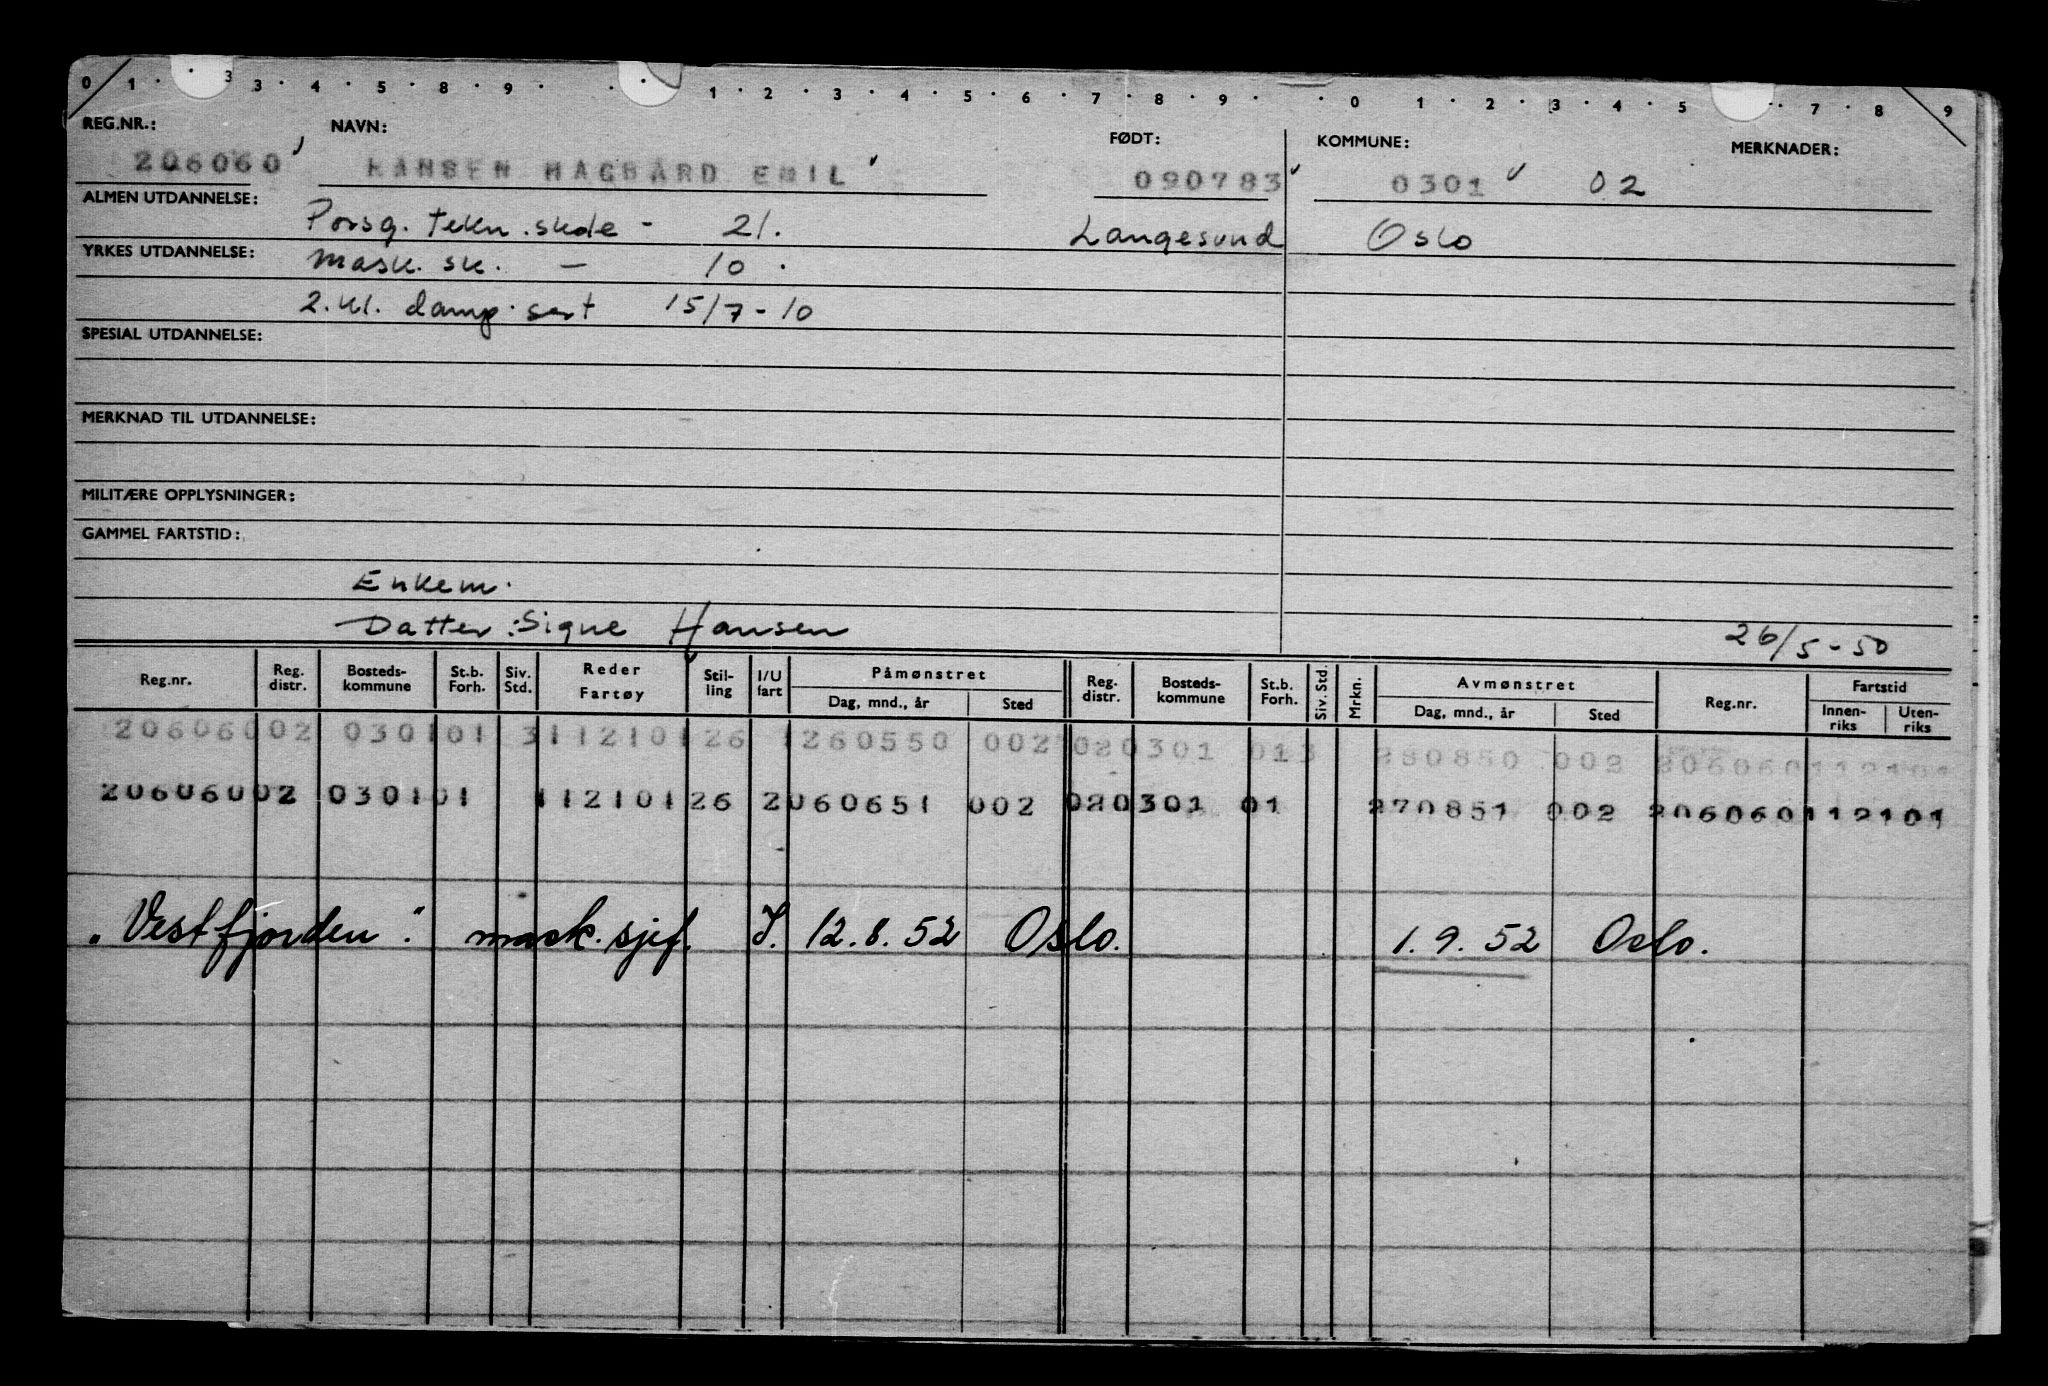 0 1 · · 3 3 · 4 · 5 · 8 · 9 · · 1 · 2 · 3 · 4 · 5 · 6 · 7 · 8 · 9 · · 0 1 · 2 · 3 · 4 · 5 · · 7 · 8 9
REG.NR.: NAVN: FØDT: KOMMUNE: MERKNADER:
206060 HANSEN HAGBARD EMIL 090783 0301 02
ALMEN UTDANNELSE: Porsg. tekn. skole - 21. Langesund Oslo
YRKES UTDANNELSE: mask. sk. — 10.
2. kl. damp. sert 15/7-10
SPESIAL UTDANNELSE:
MERKNAD TIL UTDANNELSE:
MILITÆRE OPPLYSNINGER:
GAMMEL FARTSTID:
Enkem.
Datter: Signe Hansen 26/5-50
Reg.nr. Reg. distr. Bosteds-kommune St.b. Forh. Siv. Std. Reder Fartøy Stil-ling I/U fart Påmønstret Dag, mnd., år Sted Reg. distr. Bosteds-kommune St.b. Forh. Siv. Std. Mrkn. Avmønstret Dag, mnd., år Sted Reg.nr. Fartstid Innen-riks Uten-riks
20606002 030101 311210126 1260550 002 020301 013 280850 002 206060112101
20606002 030101 11210126 2060651 002 020301 01 270851 002 206060112101
"Vestfjorden". mask.sjef. I. 12.8.52 Oslo. 1.9.52 Oslo.